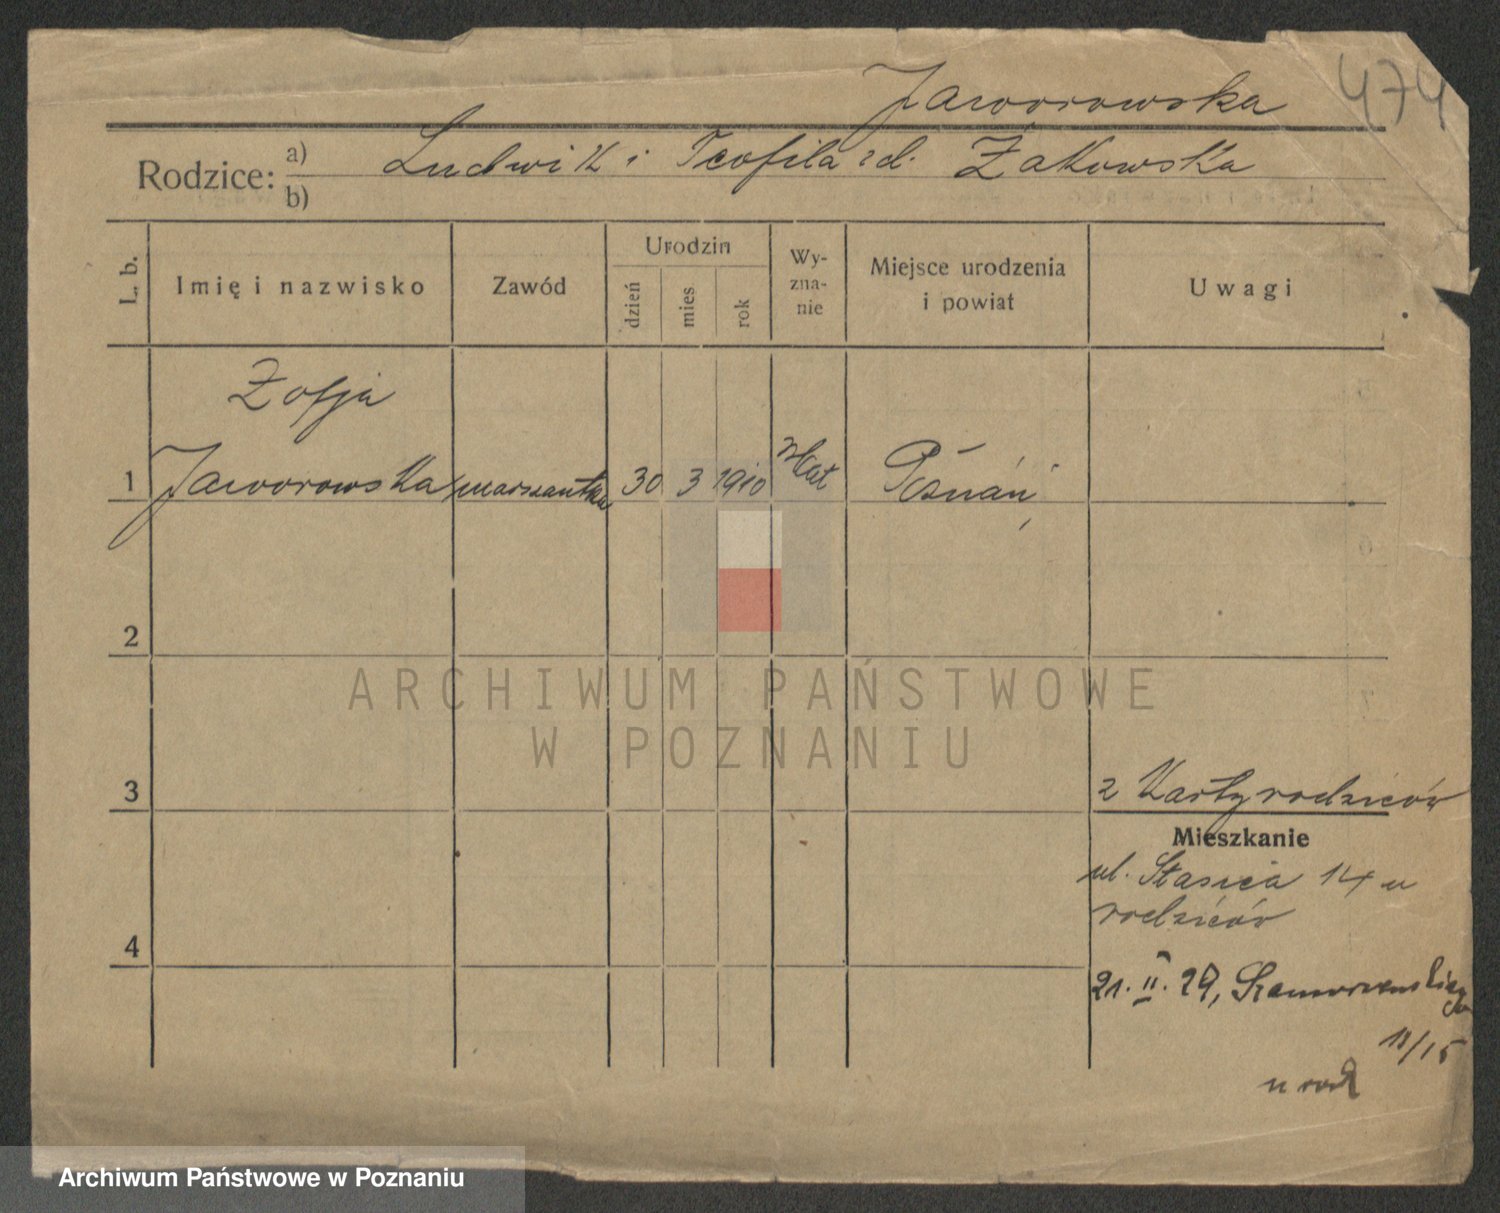 474
Jaworowska
Rodzice: a) Ludwik i Teofila zd. Żakowska
b)
L. b.
Imię i nazwisko
Zawód
Urodzin
dzień
mies
rok
Wy-
zna-
nie
Miejsce urodzenia
i powiat
Uwagi
Zofja
1 Jaworowska 30 3 1910 Kat Poznań
2
3
4
z Karty rodziców
Mieszkanie
ul. Stasica 14 u
rodziców
21. II. 29,
11/15
u rodz
ARCHIWUM PAŃSTWOWE
W POZNANIU
Archiwum Państwowe w Poznaniu